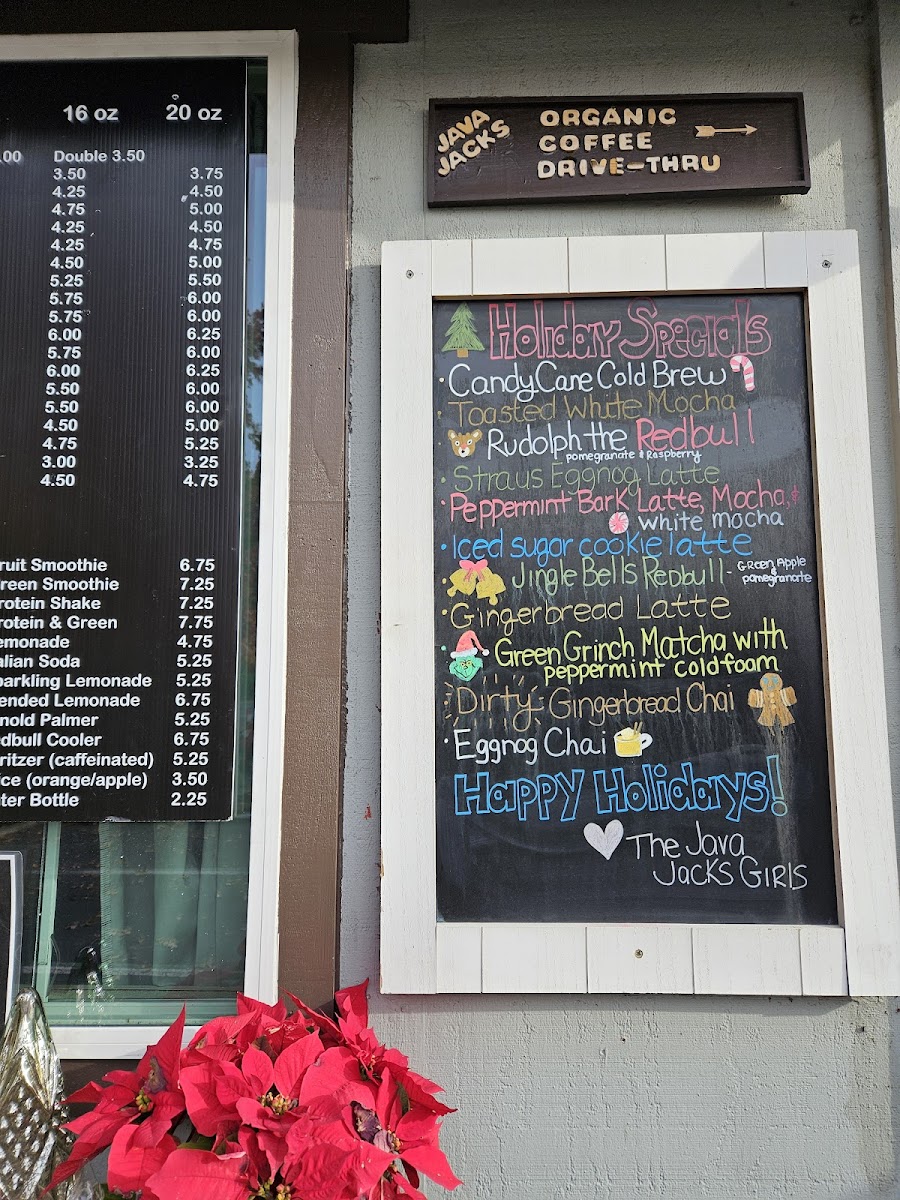 16 oz 20 oz
.00 Double 3.50
3.50 3.75
4.25 4.50
4.75 5.00
4.25 4.50
4.25 4.75
4.50 5.00
5.25 5.50
5.75 6.00
5.75 6.00
6.00 6.25
5.75 6.00
6.00 6.25
5.50 6.00
5.50 6.00
4.50 5.00
4.75 5.25
3.00 3.25
4.50 4.75
ruit Smoothie 6.75
reen Smoothie 7.25
rotein Shake 7.25
rotein & Green 7.75
emonade 4.75
alian Soda 5.25
parkling Lemonade 5.25
ended Lemonade 6.75
nold Palmer 5.25
dbull Cooler 6.75
ritzer (caffeinated) 5.25
ice (orange/apple) 3.50
ter Bottle 2.25
JAVA JACKS
ORGANIC
COFFEE
DRIVE-THRU
Holiday Specials
Candy Cane Cold Brew
Toasted White Mocha
Rudolph the Redbull
pomegranate & Raspberry
Straus Eggnog Latte
Peppermint Bark Latte, Mocha, &
white mocha
Iced sugar cookie latte
Jingle Bells Redbull - Green Apple & pomegranate
Gingerbread Latte
Green Grinch Matcha with
peppermint coldfoam
Dirty Gingerbread Chai
Eggnog Chai
Happy Holidays!
The Java
Jacks Girls